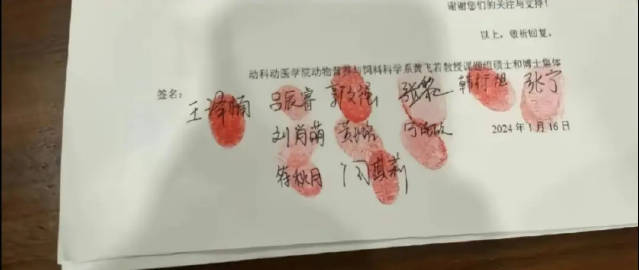 谢谢您们的关注与支持!
以上,敬祈回复。
动科动医学院动物营养与饲料科学系黄飞若教授课题组硕士和博士集体
签名:
王泽楠 吕辰睿 郭文强 张黎 韩行旭 张宁
刘肖萌
2024年1月16日
符秋月 闫其莉